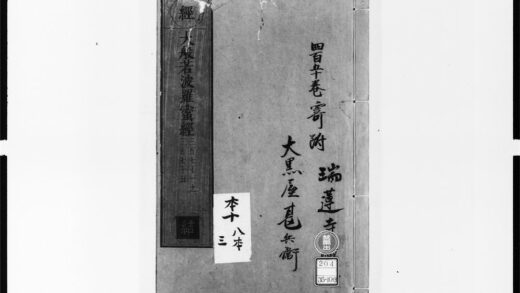 經
大般若波羅蜜經
四百五十卷寄附
瑞蓮寺
大黒屋甚兵衛
本十
八本
三
204